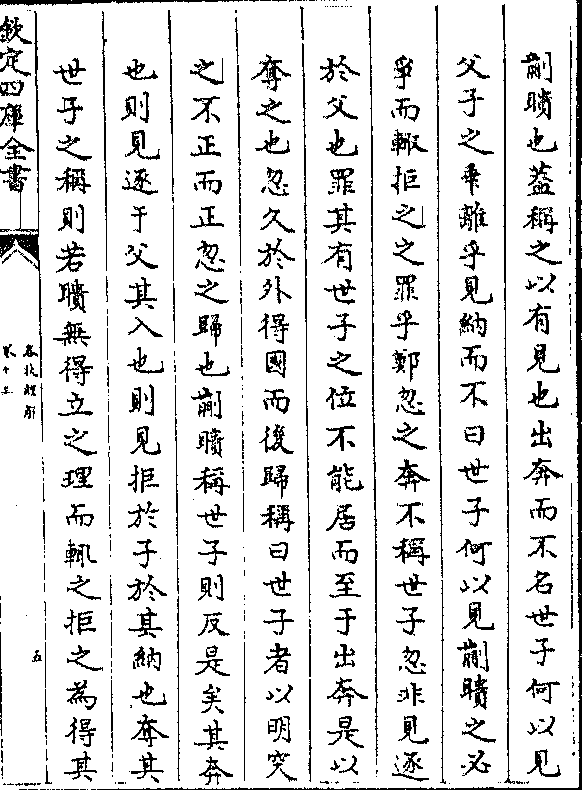 蒯聵也葢稱之以有見也出奔而不名世子何以見
父子之乖離乎見納而不曰世子何以見蒯聵之必
爭而輙拒之之罪乎鄭忽之奔不稱世子忽非見逐
於父也罪其有世子之位不能居而至于出奔是以
奪之也忽久於外得國而後歸稱曰世子者以明突
之不正而正忽之歸也蒯聵稱世子則反是矣其奔
也則見逐于父其入也則見拒於子於其納也奪其
世子之稱則若聵無得立之理而輒之拒之為得其
欽定四庫全書
五